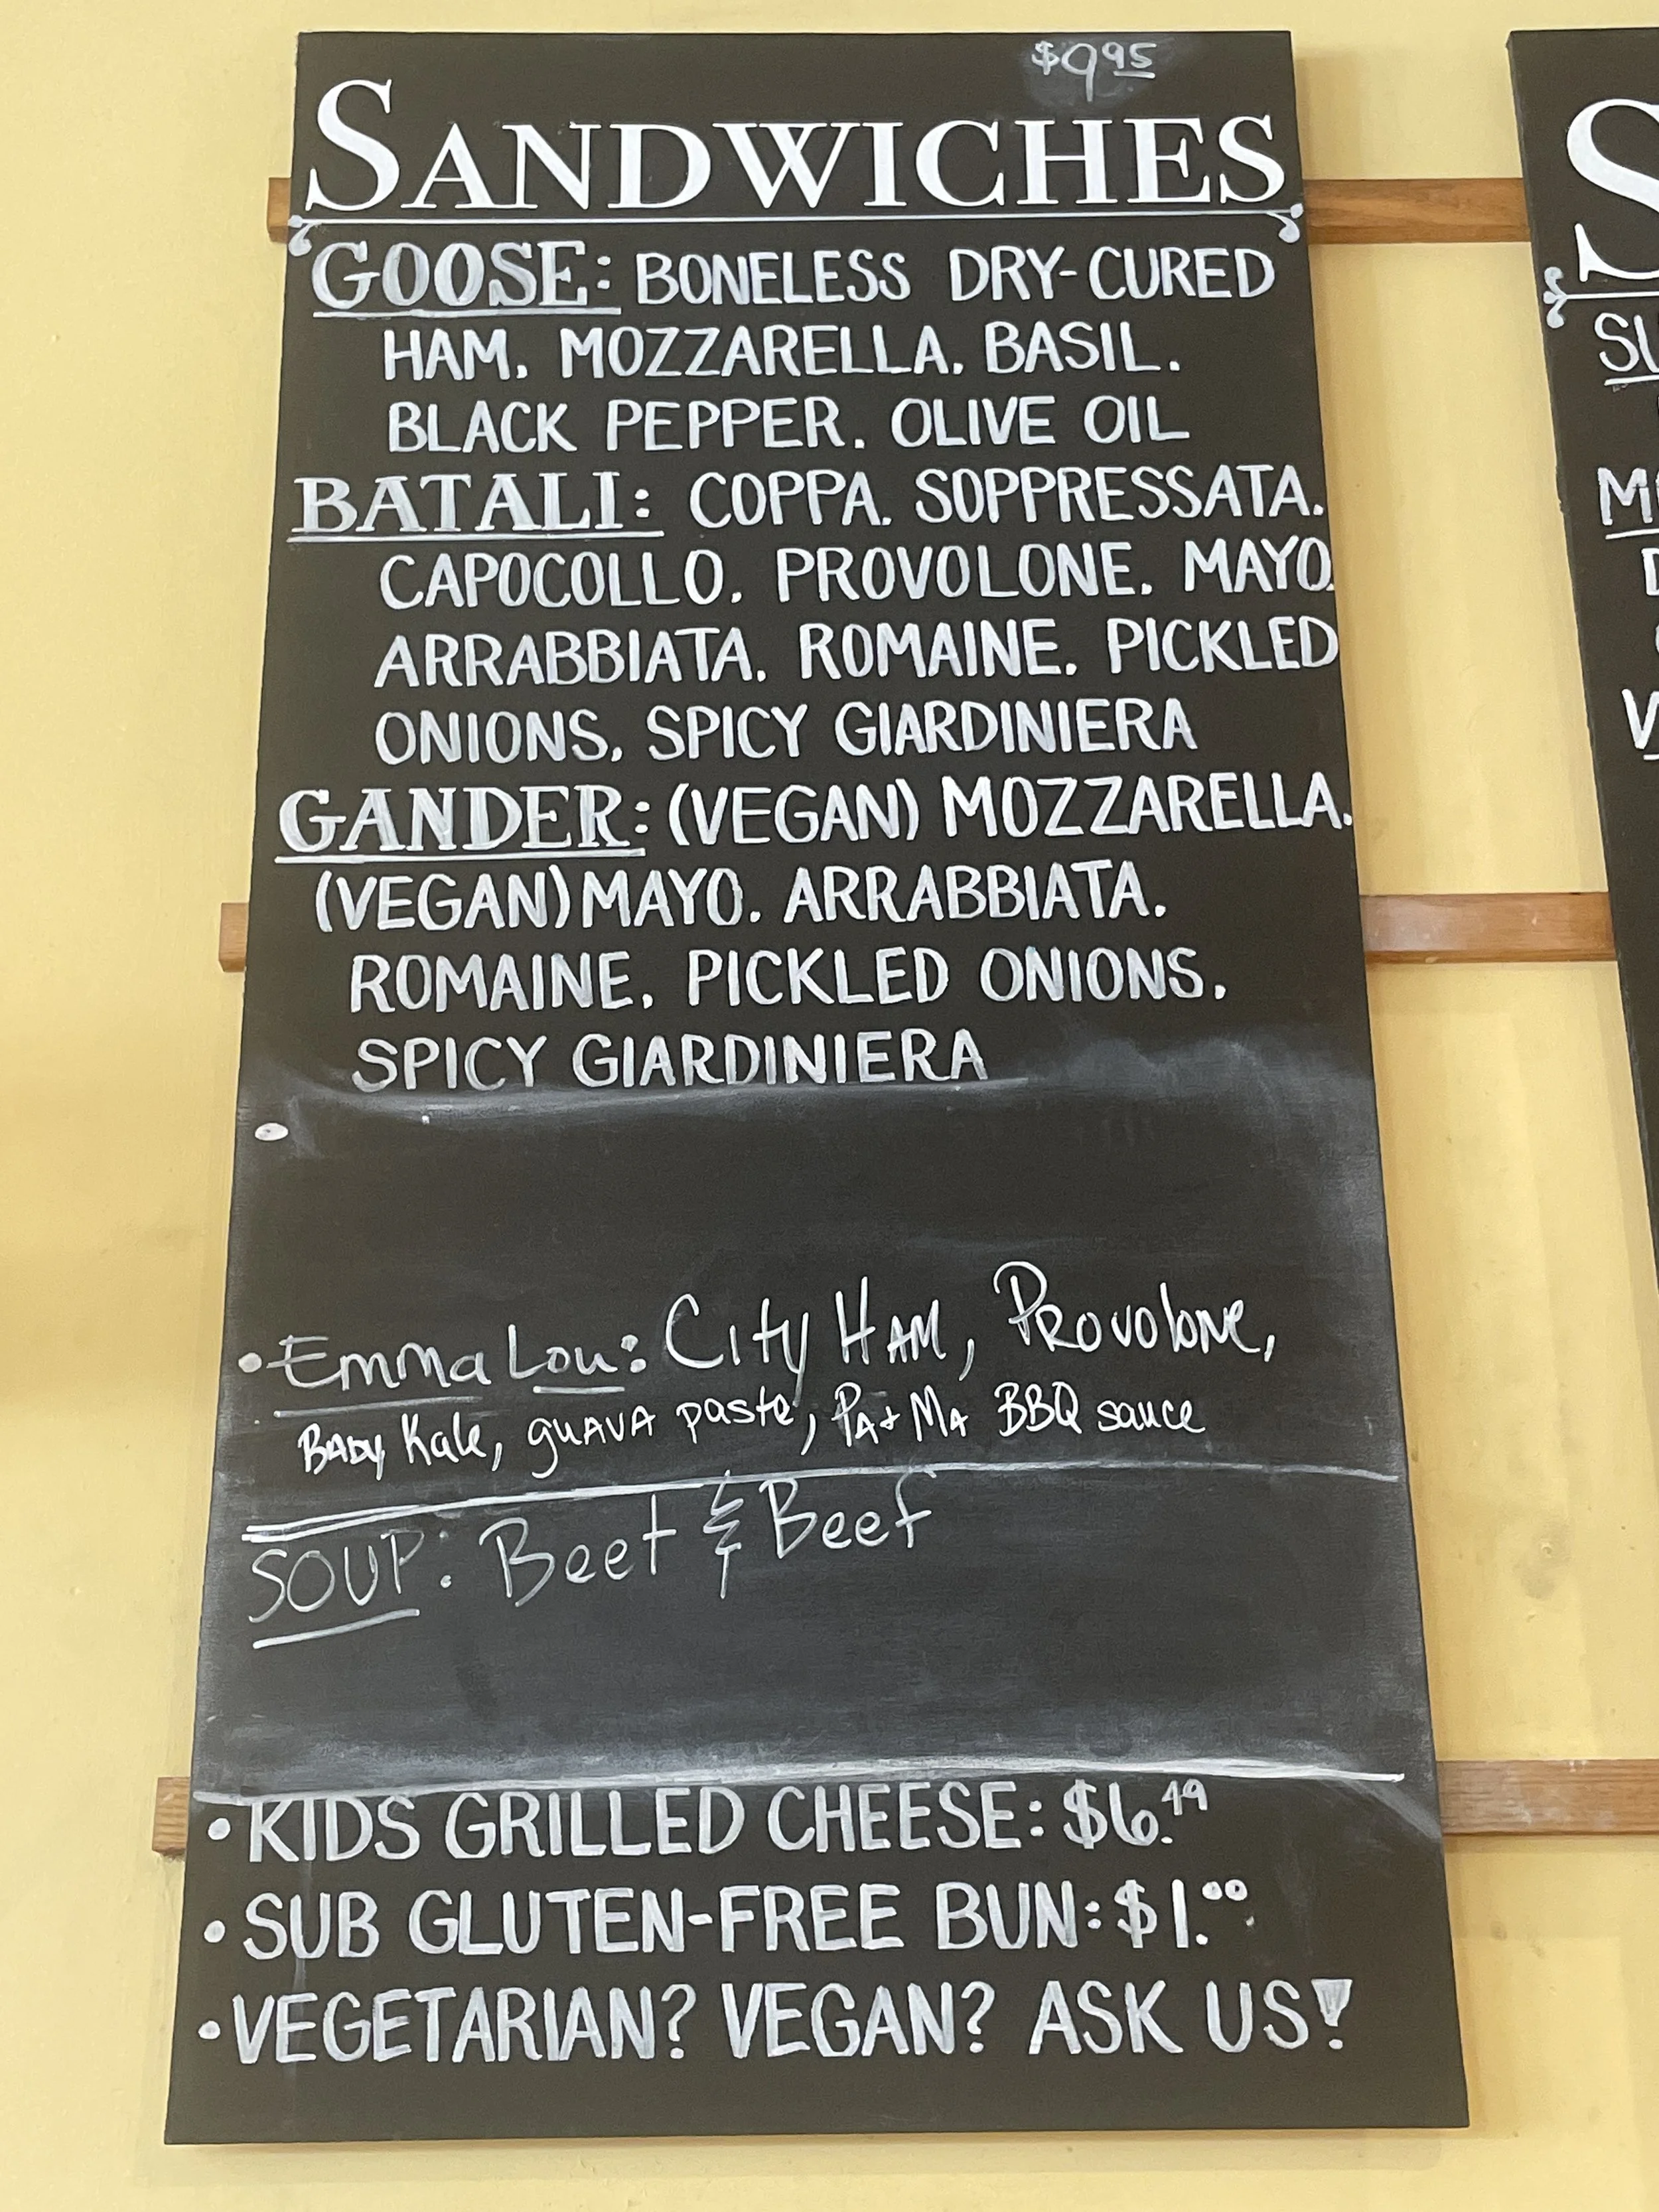 $9.95
SANDWICHES
GOOSE: BONELESS DRY-CURED
HAM. MOZZARELLA. BASIL.
BLACK PEPPER. OLIVE OIL
BATALI: COPPA. SOPPRESSATA.
CAPOCOLLO. PROVOLONE. MAYO.
ARRABBIATA. ROMAINE. PICKLED
ONIONS. SPICY GIARDINIERA
GANDER: (VEGAN) MOZZARELLA.
(VEGAN) MAYO. ARRABBIATA.
ROMAINE. PICKLED ONIONS.
SPICY GIARDINIERA
• Emma Lou: City HAM, PROvolone,
BABy Kale, guAVA paste, PA & MA BBQ sauce
SOUP: Beet & Beef
• KIDS GRILLED CHEESE: $6.49
• SUB GLUTEN-FREE BUN: $1.00
• VEGETARIAN? VEGAN? ASK US!